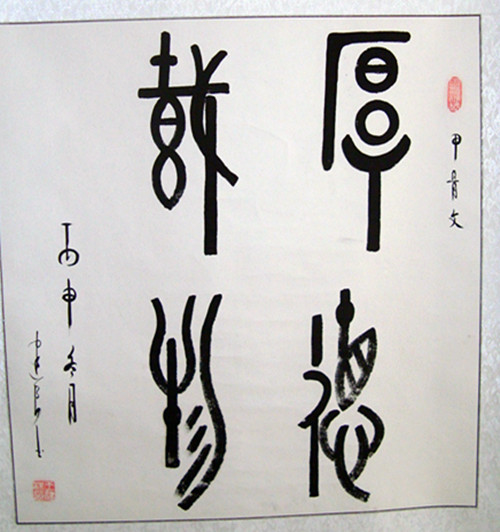 甲骨文
厚德
载物
丙申冬月